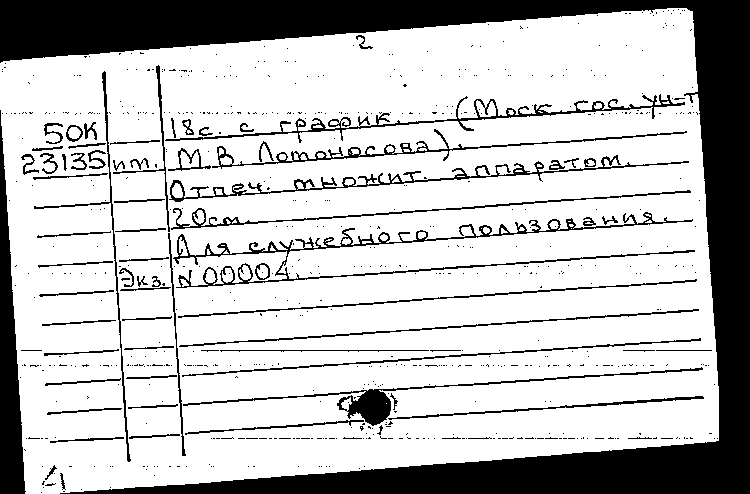 2
50К 18с. с график. (Моск. гос. ун-т
23135 им. М.В. Ломоносова).
Отпеч. множит. аппаратом.
20см.
Для служебного пользования.
Экз. N 00004.
4